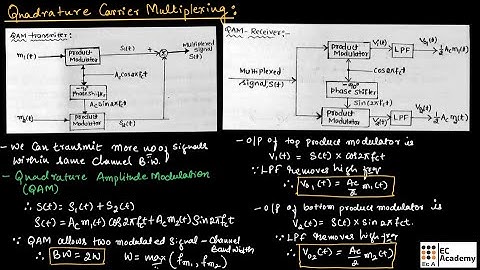 Quadrature Carrier Multiplexing:
QAM-transmiter:-
m₁(t)
Product Modulator
S₁(t)
+
Multiplexed signal
S(t)
A_c cos2πf_ct
-90°
Phase shifter
A_c sin2πf_ct
m₂(t)
Product Modulator
S₂(t)
QAM-Receiver:-
Multiplexed signal, S(t)
Product Modulator
V₁(t)
LPF
V₀₁(t)
½ A_c m₁(t)
cos2πf_ct
-90°
Phase shifter
sin(2πf_ct)
Product Modulator
V₂(t)
LPF
V₀₂(t)
½ A_c m₂(t)
- We can transmit more no of signals
within same channel B.W.
- Quadrature Amplitude Modulation
(QAM)
∴ S(t) = S₁(t) + S₂(t)
S(t) = A_c m₁(t) cos2πf_ct + A_c m₂(t) sin2πf_ct
∵ QAM allows two modulated signal - channel
bandwidth
∴ BW = 2W
W = max (f_m₁, f_m₂)
- O/P of top product modulator is
V₁(t) = S(t) × cos2πf_ct
∵ LPF Removes high freq
∴ V₀₁(t) = A_c/2 m₁(t)
- O/P of bottom product modulator is
V₂(t) = S(t) × sin2πf_ct.
∵ LPF removes high freq
∴ V₀₂(t) = A_c/2 m₂(t)
EC
Academy
EC A